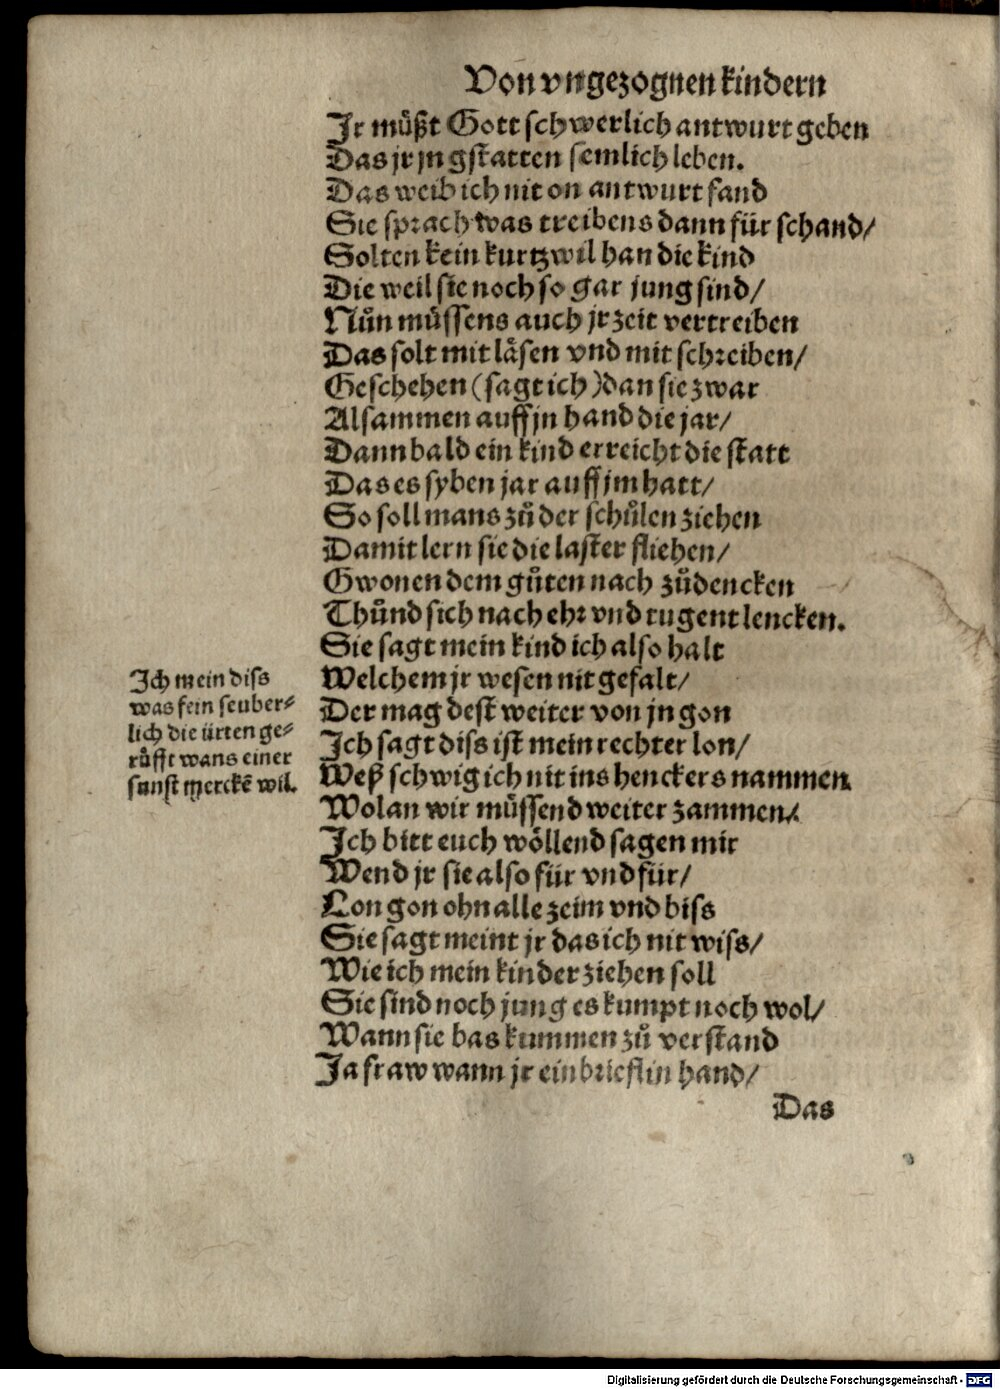 Von vngezognen kindern
Jr muͤßt Gott schwerlich antwurt geben
Das jr jn gstatten semlich leben.
Das weib ich nit on antwurt fand
Sie sprach was treibens dann für schand/
Solten kein kurtzwil han die kind
Die weil sie noch so gar jung sind/
Nuͤn muͤssens auch jr zeit vertreiben
Das solt mit laͤsen vnd mit schreiben/
Geschehen (sagt ich) dan sie zwar
Alsammen auff jn hand die jar/
Dann bald ein kind erreicht die statt
Das es syben jar auff jm hatt/
So soll mans zuͦ der schuͦlen ziehen
Damit lern sie die laster fliehen/
Gwonen dem guͦten nach zuͦdencken
Thuͦnd sich nach ehr vnd tugent lencken.
Sie sagt mein kind ich also halt
Welchem jr wesen nit gefalt/
Der mag dest weiter von jn gon
Jch sagt diss ist mein rechter lon/
Weß schwig ich nit ins henckers nammen.
Wolan wir muͤssend weiter zammen/
Jch bitt euch woͤllend sagen mir
Wend jr sie also für vnd für/
Lon gon ohn alle zeim vnd biss
Sie sagt meint jr das ich nit wiss/
Wie ich mein kinder ziehen soll
Sie sind noch jung es kumpt noch wol/
Wann sie bas kummen zuͦ verstand
Ja fraw wann jr ein brieflin hand/
Das
Jch mein diss
was fein seuber⸗
lich die ürten ge⸗
ruͤfft wans einer
sunst merckē wil.
Digitalisierung gefördert durch die Deutsche Forschungsgemeinschaft - DFG